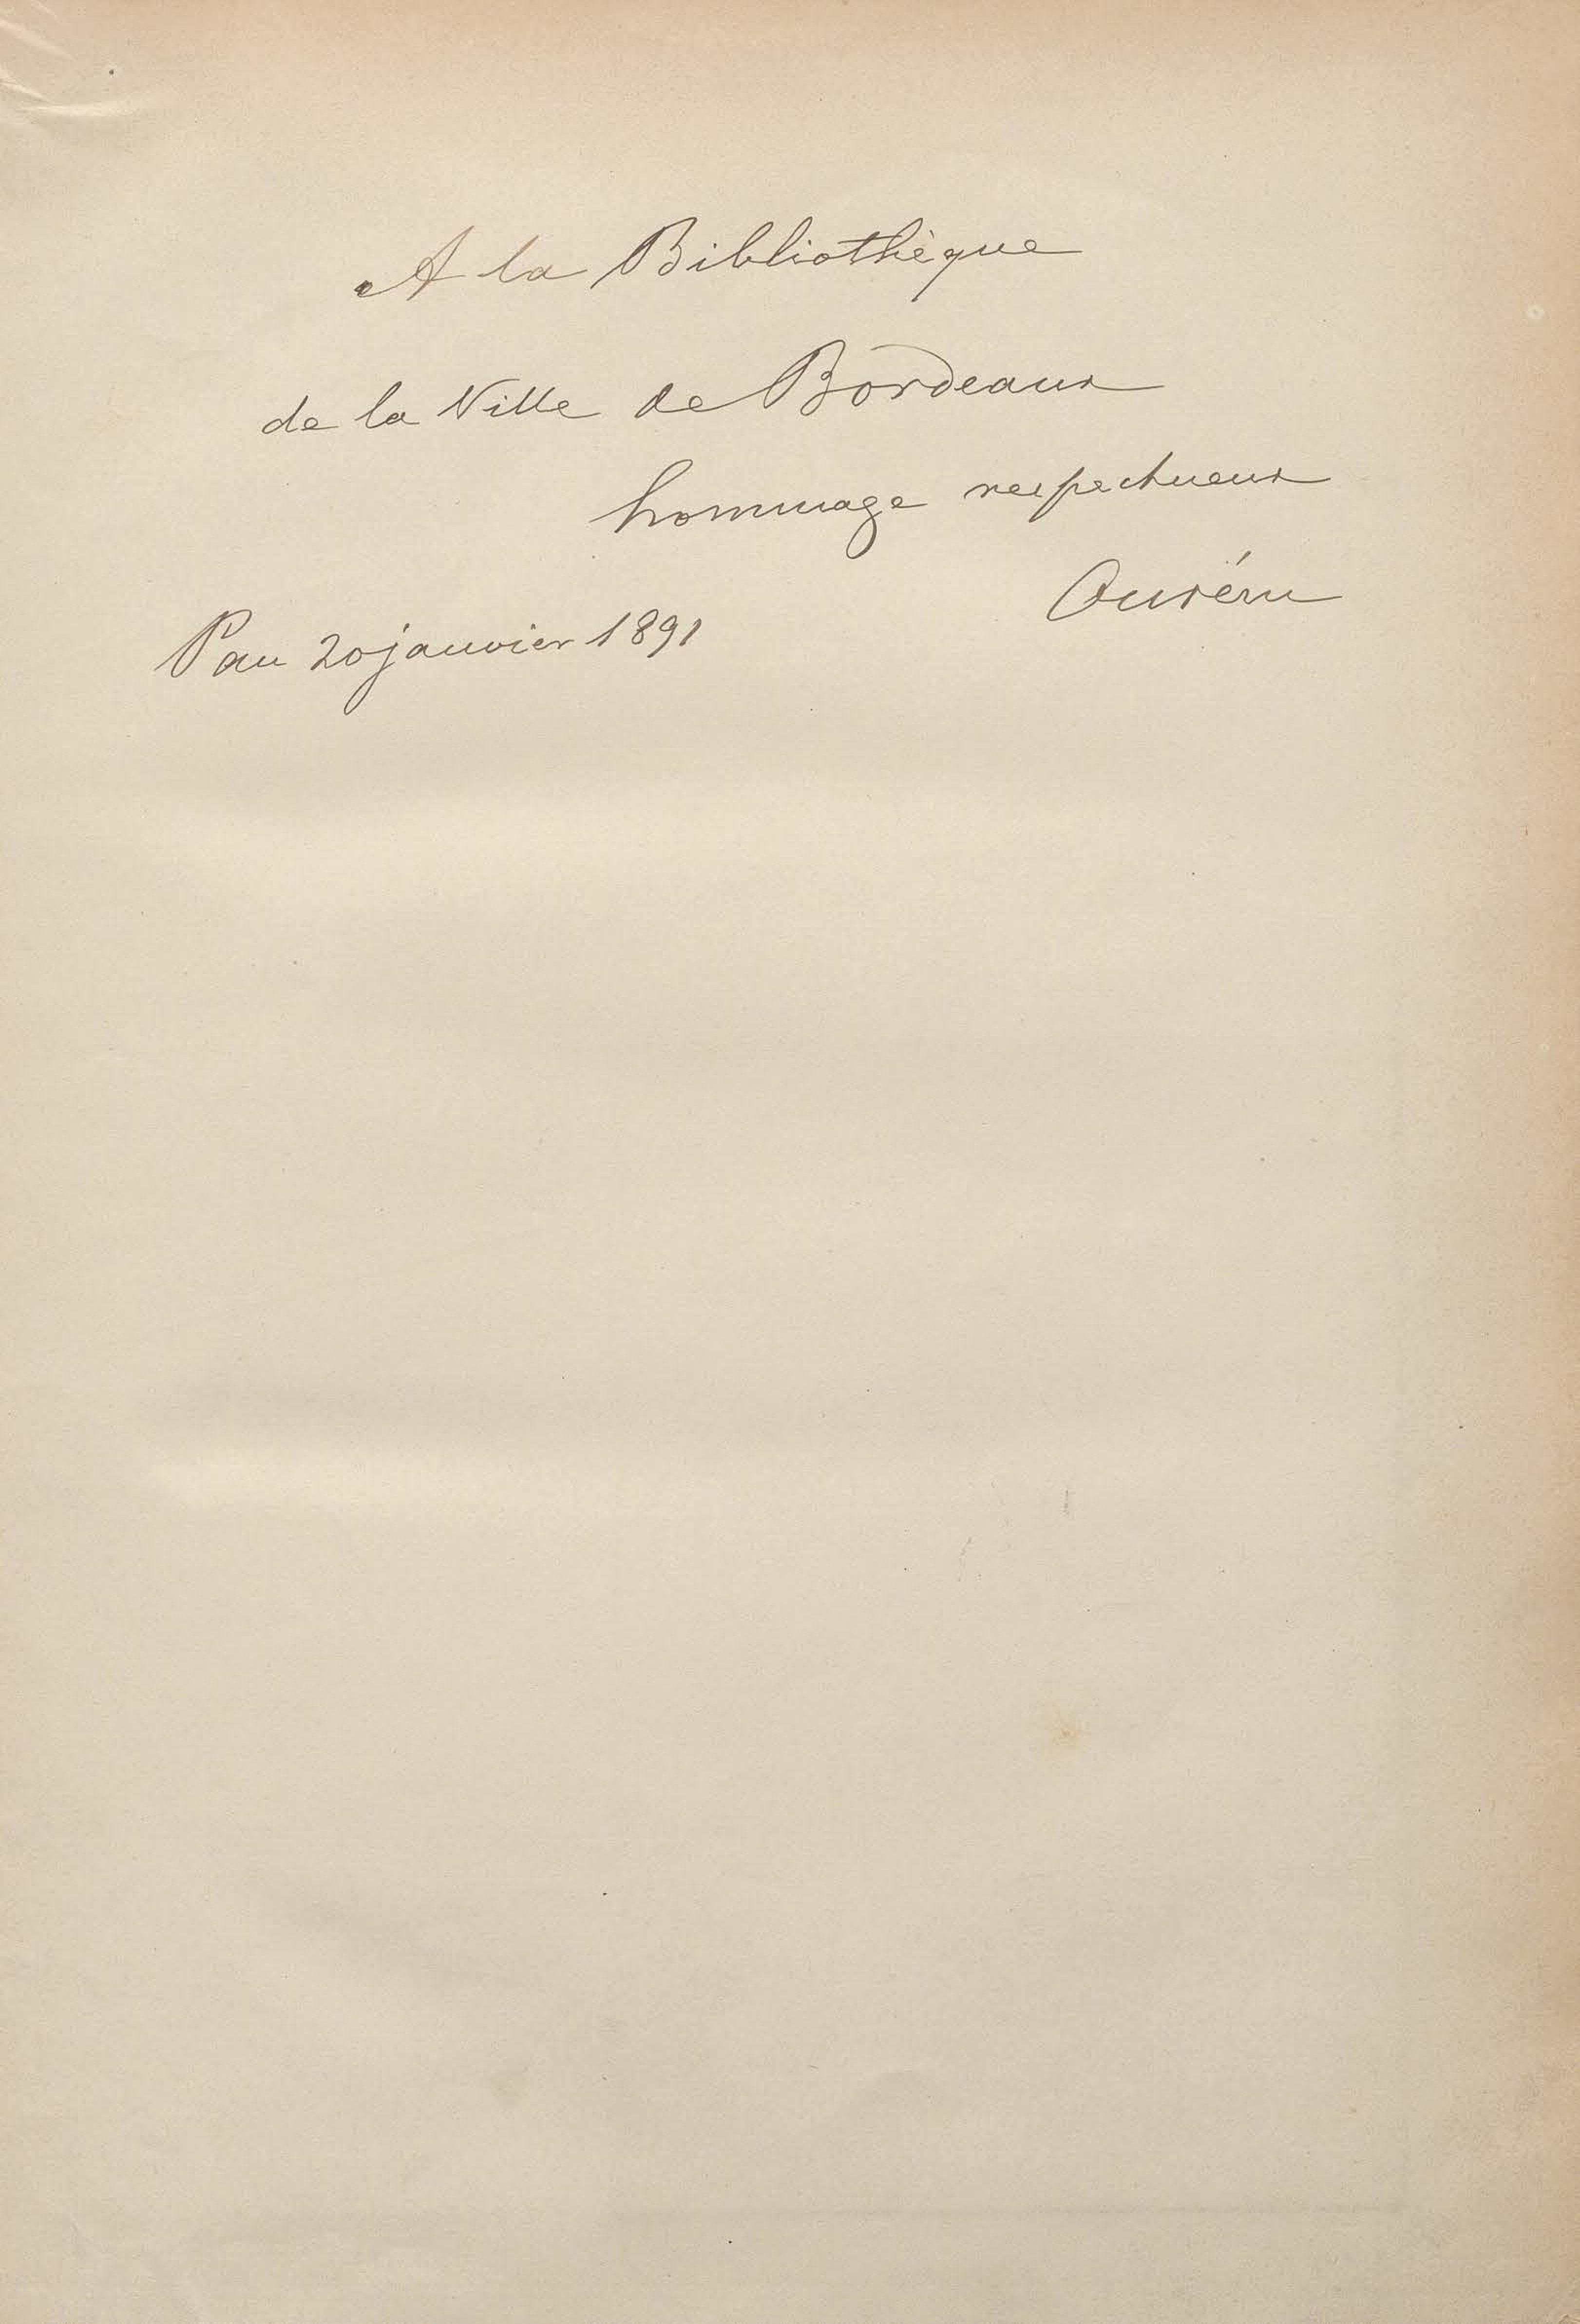 A la Bibliothèque
de la Ville de Bordeaux
hommage respectueux
Pau 20 janvier 1891